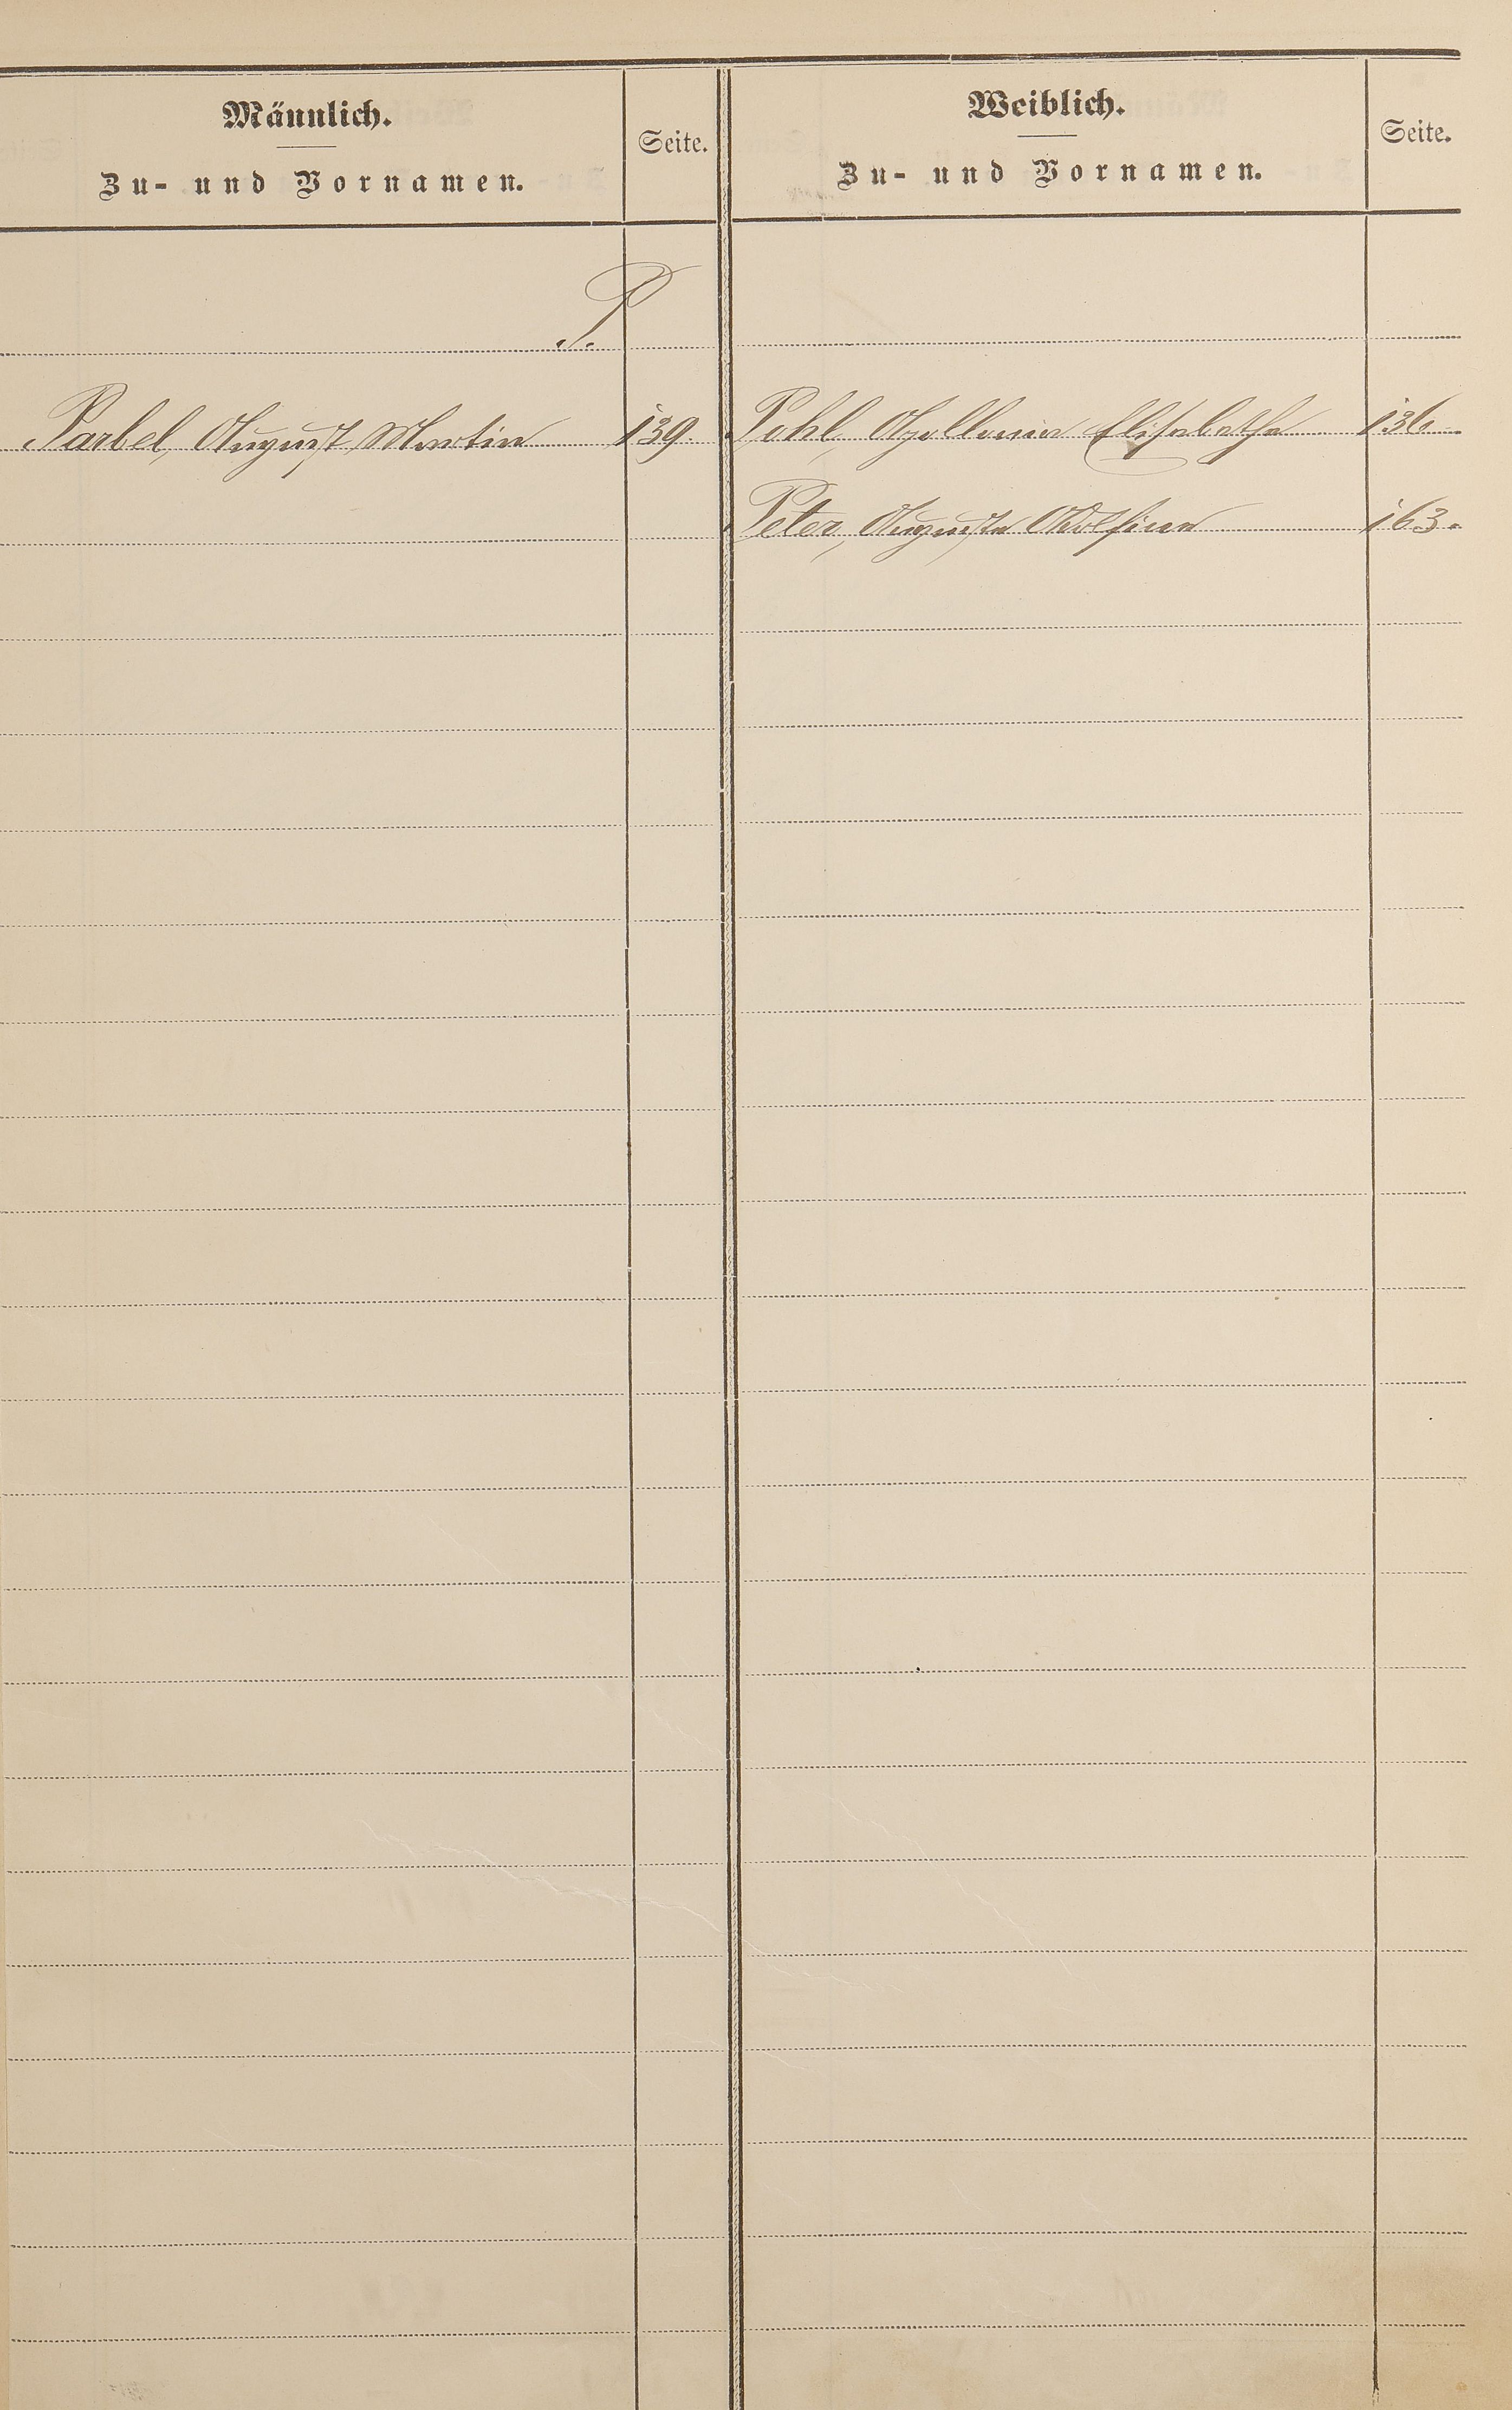 Männlich.
Zu- und Vornamen.
Seite.
Weiblich.
Zu- und Vornamen.
Seite.
P.
Parbel, August Martin 139. Pohl, Apollonia Elisabetha 136.
Peter, Augusta Adolfina 163.